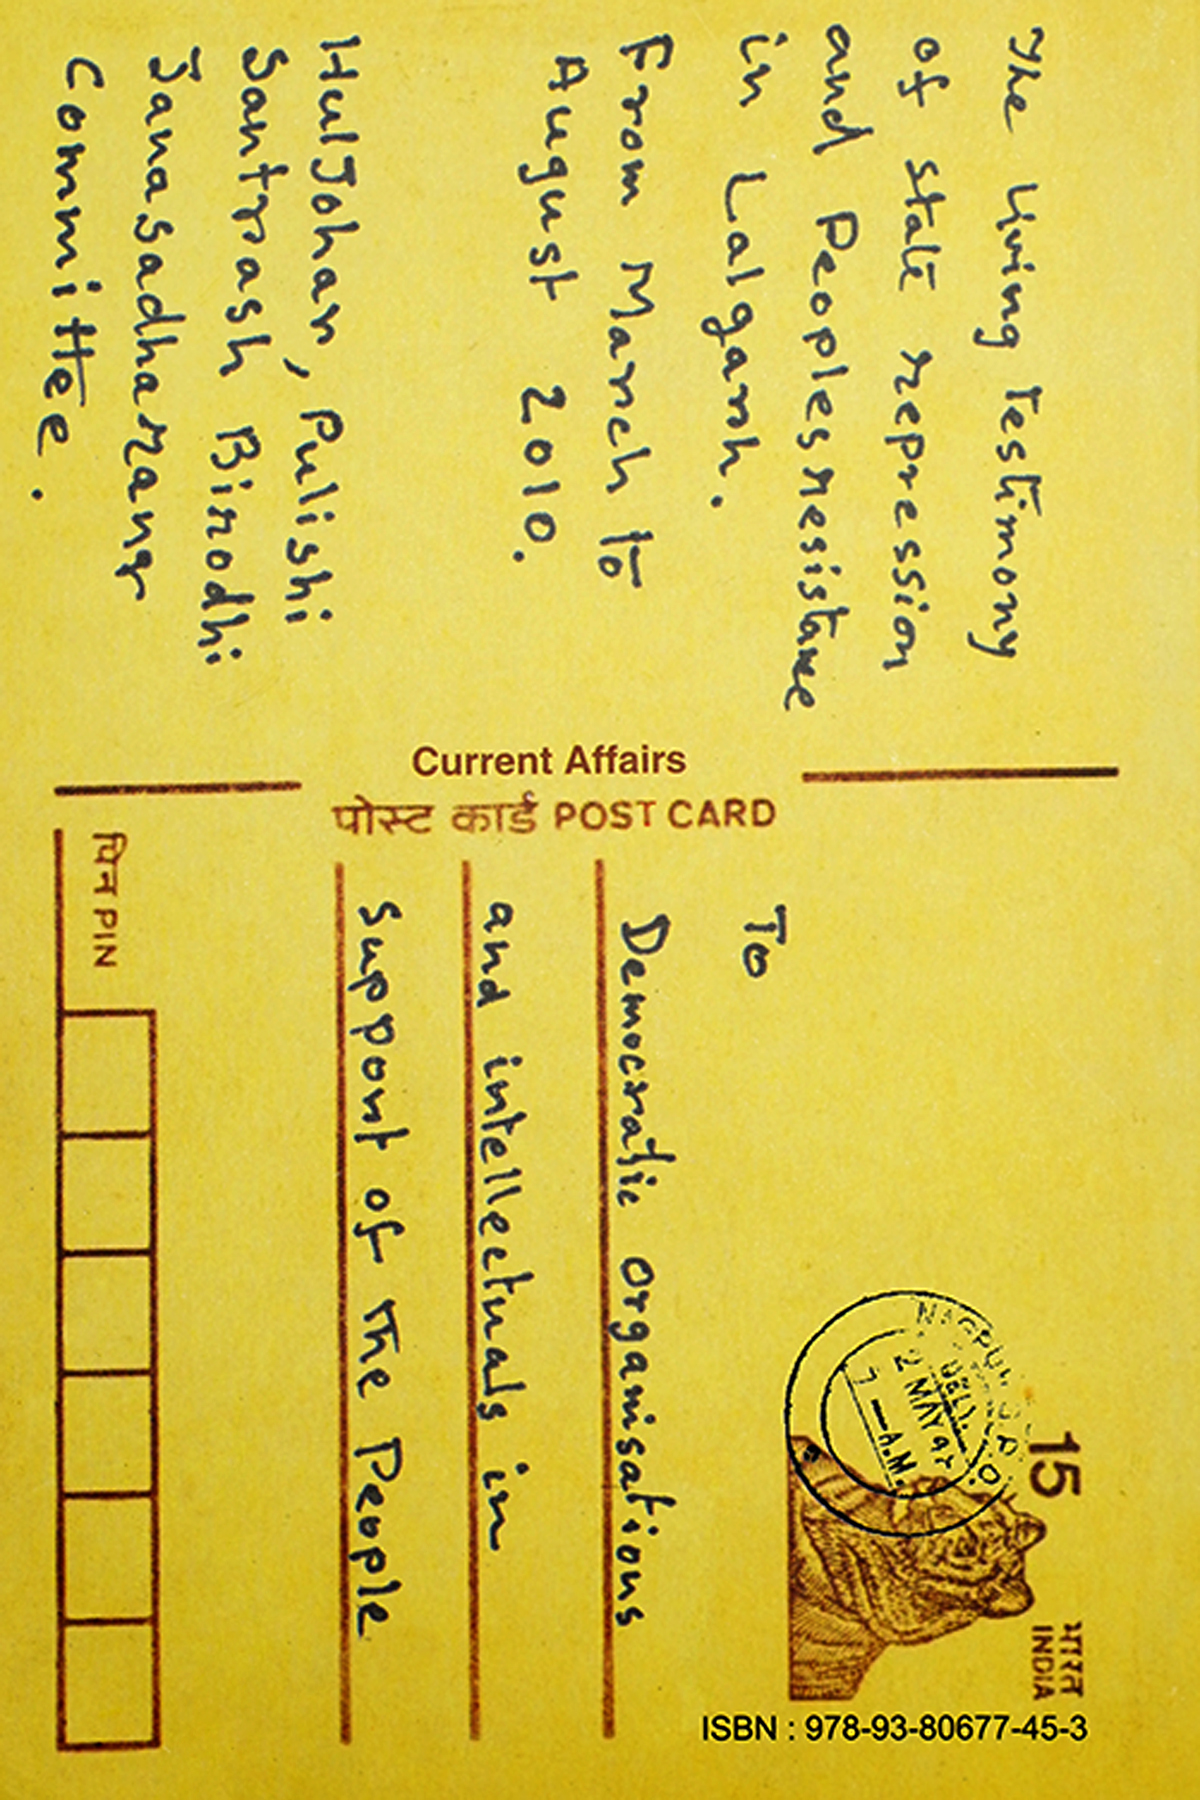 The living Testimony
of state repression
and Peoples resistance
in Lalgarh.
From March to
August 2010.
HulJohar, Pulishi
Santrash Birodhi
Janasadharaner
Committee.
Current Affairs
पोस्ट कार्ड POST CARD
To
Democratic organisations
and intellectuals in
support of the People
पिन PIN
NAGPUR
DELY.
2 MAY
7-A.M.
15
भारत
INDIA
ISBN : 978-93-80677-45-3